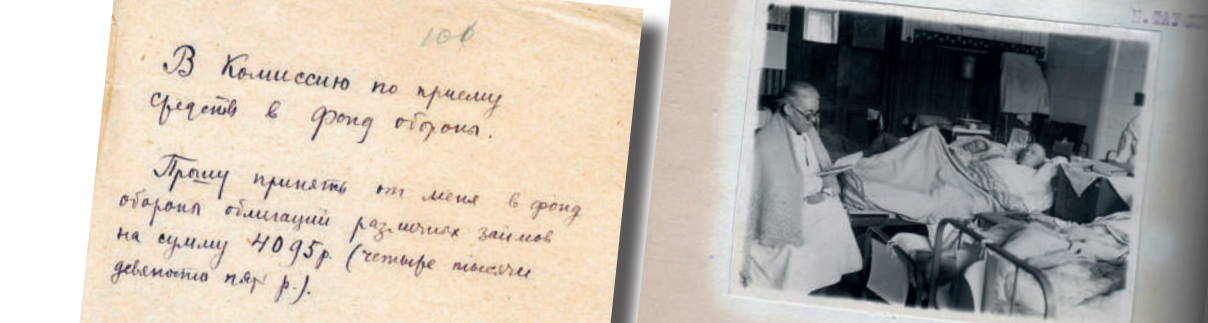 106
В Комиссию по приему
средств в фонд обороны.
Прошу принять от меня в фонд
обороны облигаций различных займов
на сумму 4095р. (четыре тысячи
девяносто пять р.).